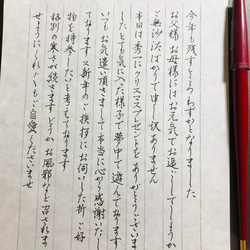 今年も残すところわずかとなりました
お父様 お母様にはお元気でお過ごしでしょうか
ご無沙汰ばかりで申し訳ありません
本日は秀にクリスマスプレゼントをありがとうございま
した とても気に入った様子で夢中で遊んでおります
いつもお気遣い頂きまして本当に心から感謝いたし
ております 又新年のご挨拶にお伺いした折 ご好
物を持参しますと考えております
格別の寒さが続きます どうかお風邪など召されま
せんように くれぐれもご自愛くださいませ